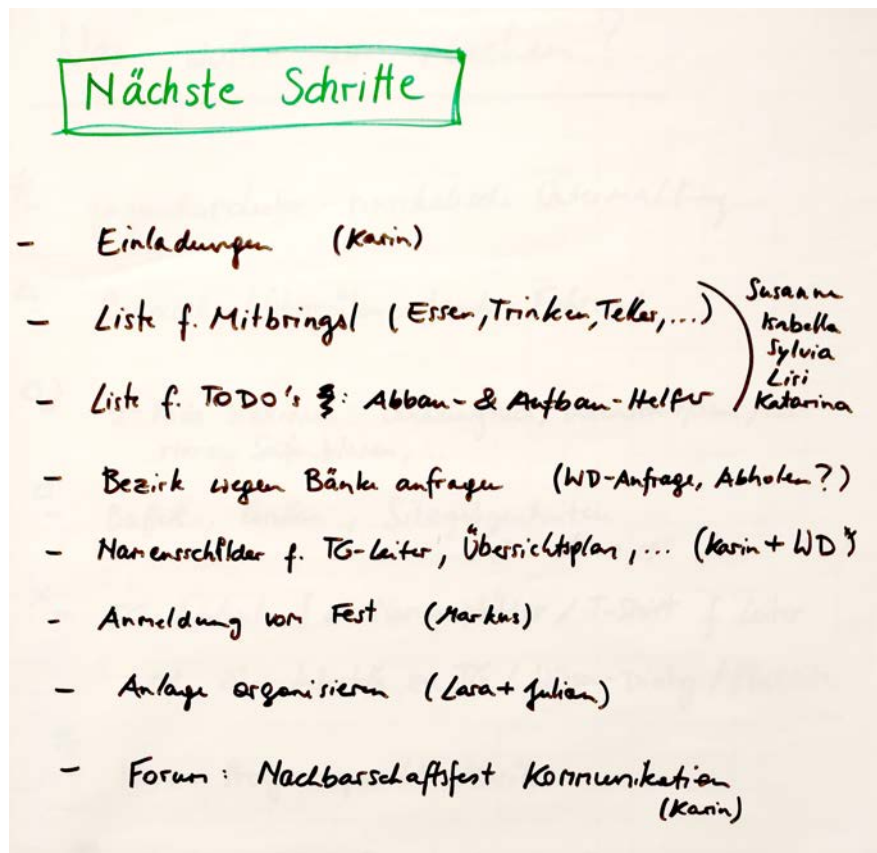 Nächste Schritte
- Einladungen (Karin)
- Liste f. Mitbringsl (Essen, Trinken, Teller, ...)
Susanne
Isabella
Sylvia
Lisi
Katarina
- Liste f. TODO's : Abbau- & Aufbau-Helfer
- Bezirk wegen Bänke anfragen (WD-Anfrage, Abholen?)
- Namensschilder f. TG-Leiter, Übersichtsplan, ... (Karin + WD)
- Anmeldung vom Fest (Markus)
- Anlage organisieren (Lara + Julian)
- Forum: Nachbarschaftsfest Kommunikation
(Karin)